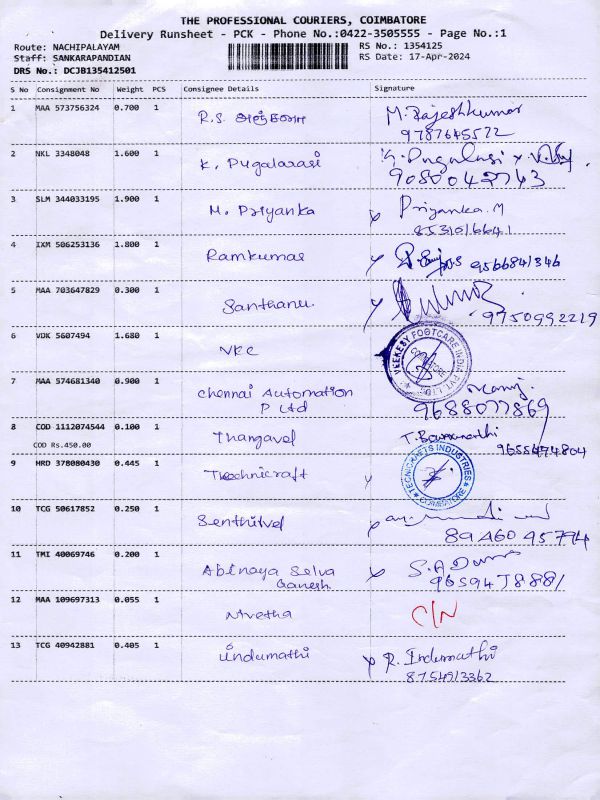 THE PROFESSIONAL COURIERS, COIMBATORE
Delivery Runsheet - PCK - Phone No.:0422-3505555 - Page No.:1
Route: NACHIPALAYAM RS No.: 1354125
Staff: SANKARAPANDIAN RS Date: 17-Apr-2024
DRS No.: DCJB135412501
S No Consignment No Weight PCS Consignee Details Signature
1 MAA 573756324 0.700 1 R.S. M. Rajeshkumar
9787645522
2 NKL 3348048 1.600 1 K. Pugalarasi
9080042743
3 SLM 344033195 1.900 1 M. Priyanka Priyanka. M
8531016641
4 IXM 506253136 1.800 1 Ramkumar 9566841346
5 MAA 703647829 0.300 1 Santhanu.
9750992219
6 VDK 5607494 1.680 1 VKC VEEKESY FOOTCARE INDIA PVT. LTD COIMBATORE
7 MAA 574681340 0.900 1 Chennai Automation
P Ltd 9688077869
8 COD 1112074544 0.100 1 Thangavel
COD Rs.450.00 9655474804
9 HRD 378080430 0.445 1 Technicraft TECNICRAFTS INDUSTRIES COIMBATORE
10 TCG 50617852 0.250 1 Senthilvel
89460 45794
11 TMI 40069746 0.200 1 Abinaya Selva
Ganesh
12 MAA 109697313 0.055 1 Nivetha C/N
13 TCG 40942881 0.405 1 Indumathi R. Indumathi
8754913362